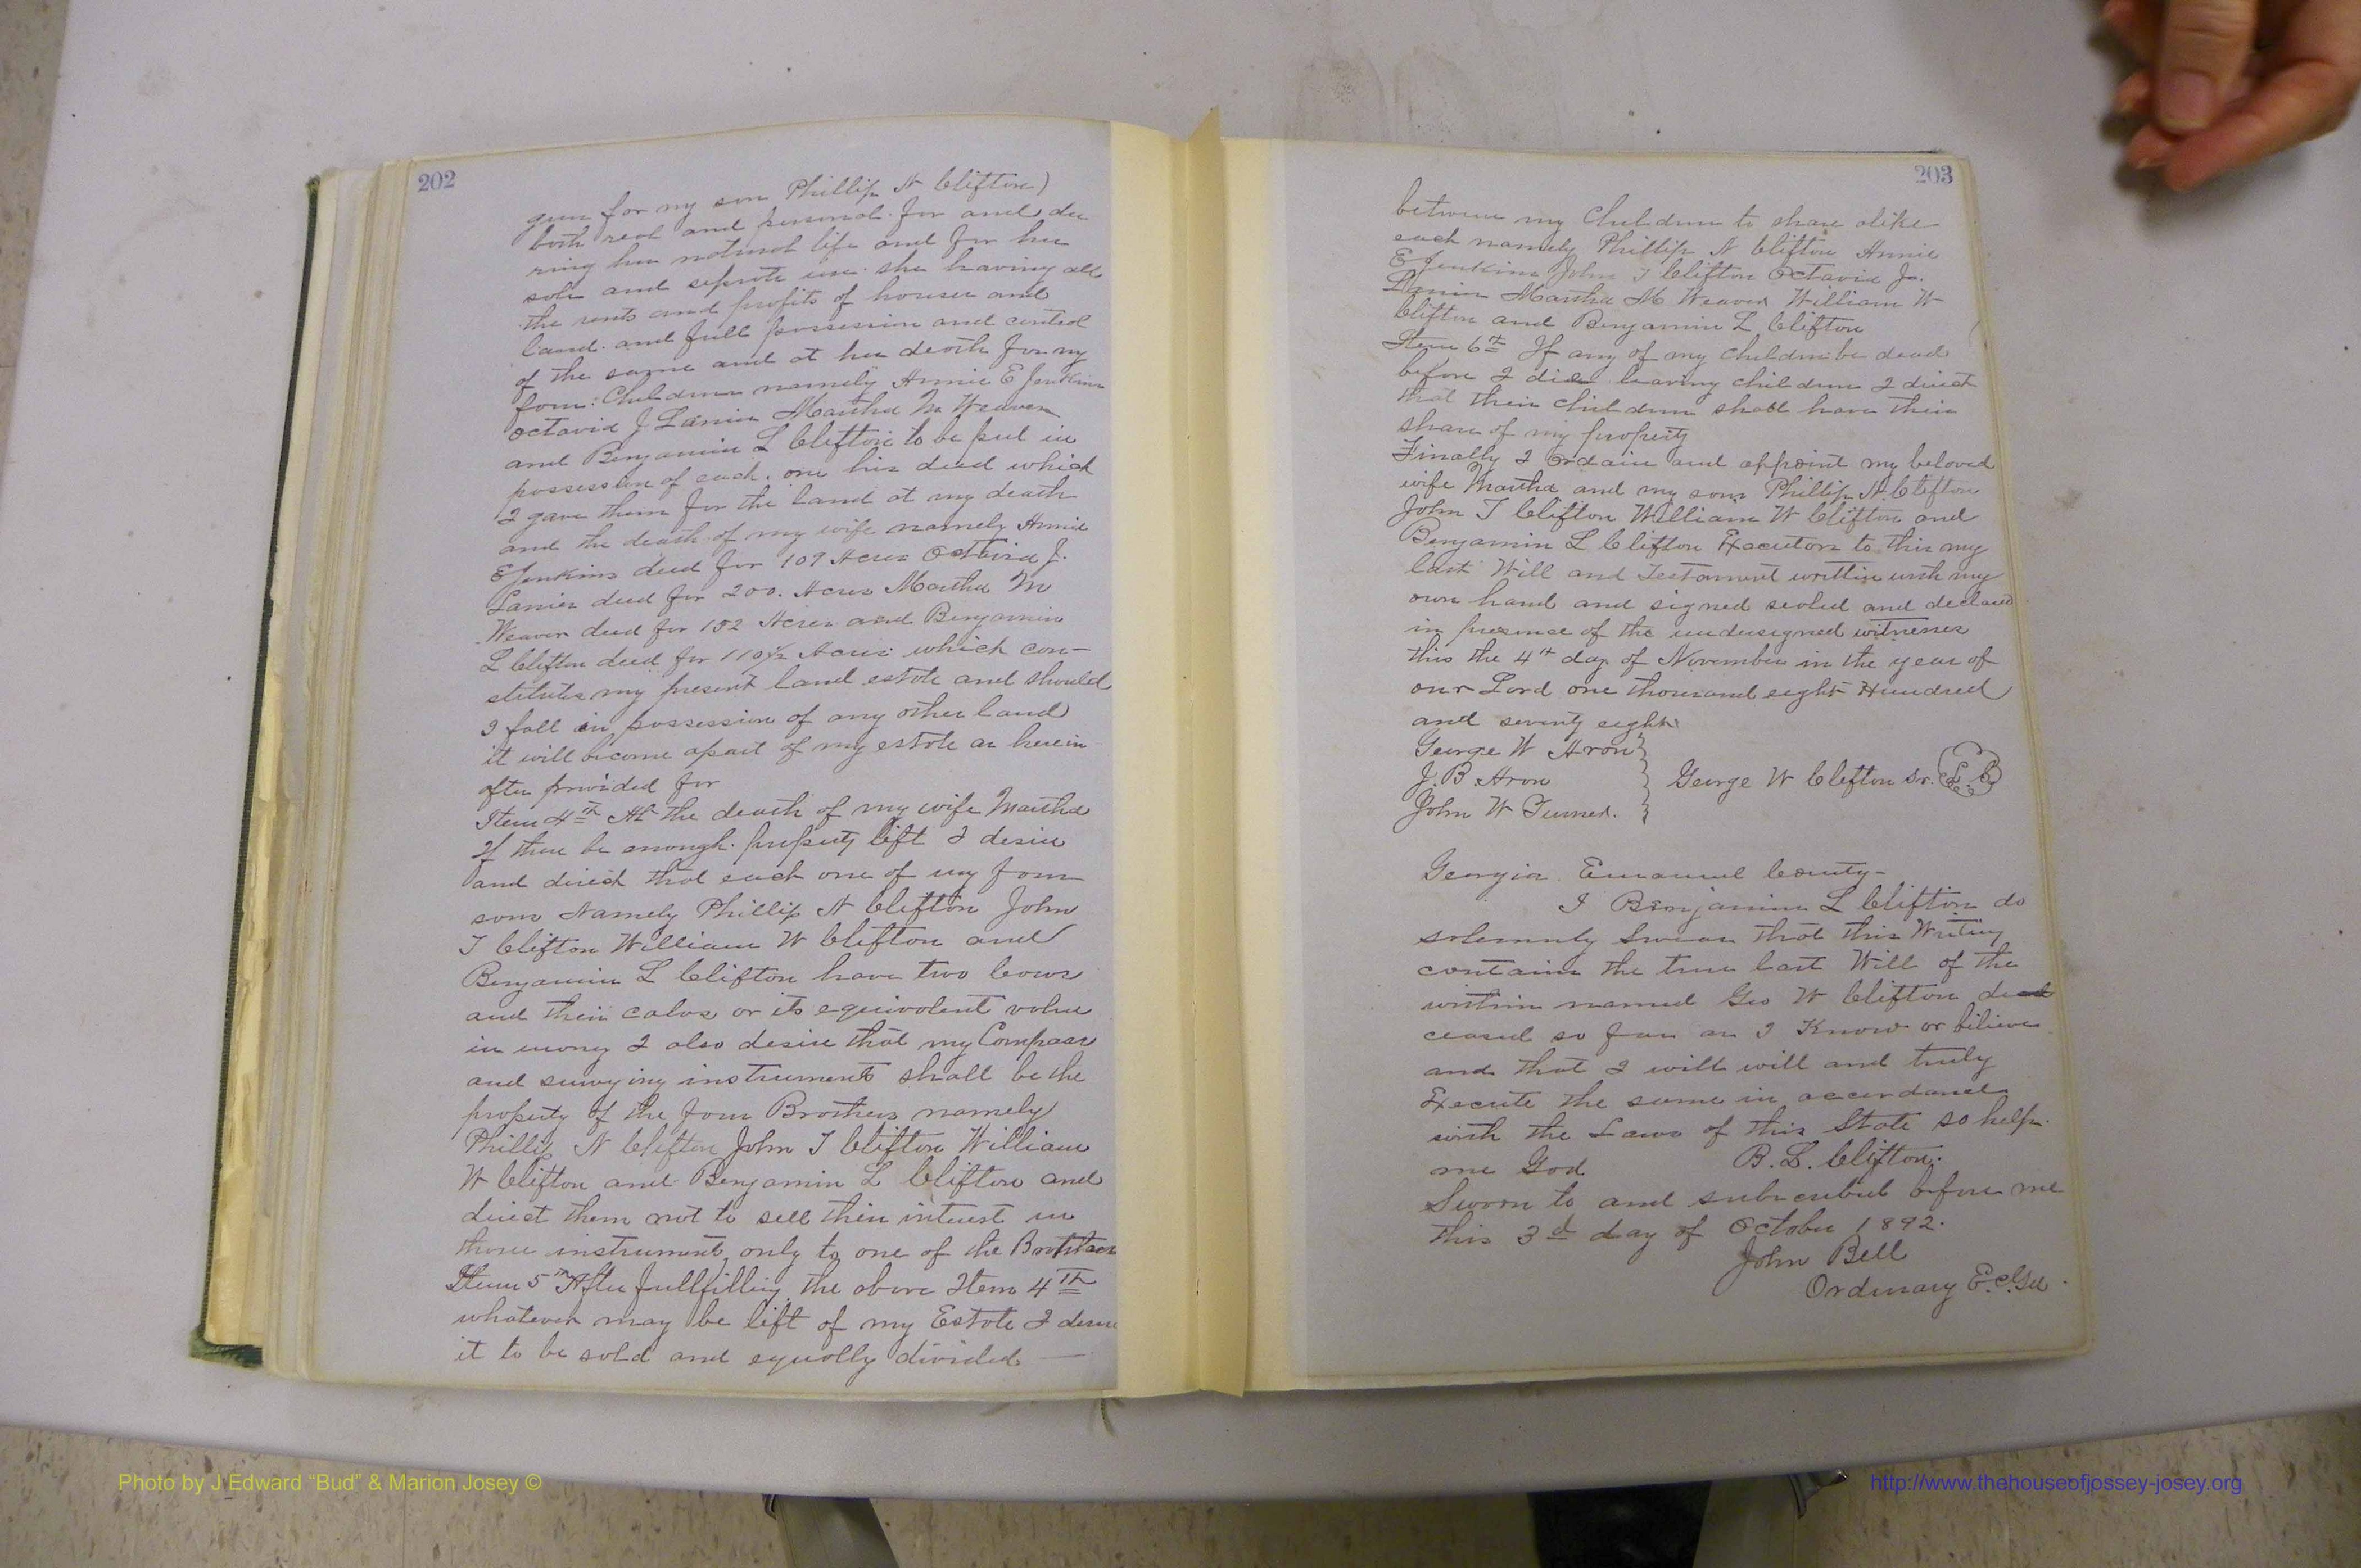 202
gun for my son Phillip N Clifton)
both real and personal. for and du
ring her natural life and for her
sole and seprate use. she having all
the rents and profits of houses and
land. and full possession and control
of the same and at her death for my
four: Children namely Annie E Jenkins
Octavia J Lanier Martha M Weaver
and Benjamin L Clifton to be put in
possession of each. one his deed which
I gave them for the land at my death
and the death of my wife namely Annie
E Jenkins deed for 109 Acres Octavia J.
Lanier deed for 200. Acres Martha M
Weaver deed for 152 Acres and Benjamin
L Clifton deed for 110½ Acres which con-
stitutes my present land estate and should
I fall in possession of any other land
it will become apart of my estate as herein
after provided for
Item 4th At the death of my wife Martha
If there be enough. property left I desire
and direct that each one of my four
sons Namely Phillip N Clifton John
T Clifton William W Clifton and
Benjamin L Clifton have two Cows
and their calvs or its equivolent value
in mony I also desire that my Compass
and survying instruments shall be the
property of the four Brothers namely
Phillip N Clifton John T Clifton William
W Clifton and Benjamin L Clifton and
direct them not to sell their interest in
those instruments only to one of the Brothers
Item 5th After fullfilling the above Item 4th
whatever may be left of my Estate I desire
it to be sold and equolly divided —
203
between my Children to share alike
each namely Phillip N Clifton Annie
E Jenkins John T Clifton Octavia Ja.
Lanier Martha M Weaver William W
Clifton and Benjamin L Clifton
Item 6th If any of my children be dead
before I die leaving children I direct
that their children shall have their
share of my property
Finally I Ordain and appoint my beloved
wife Martha and my sons Phillip N. Clifton
John T Clifton William W Clifton and
Benjamin L Clifton Executors to this my
last Will and Testament written with my
own hand and signed sealed and declared
in presence of the undersigned witnesses
this the 4th day of November in the year of
our Lord one thousand eight Hundred
and seventy eight
George W Aron
J. B Aron
George W Clifton Sr. L S
John W Turner.
Georgia Emanuel County-
I Benjamin L Clifton do
solemnly Swear that this Writing
contains the true last Will of the
within named Geo W Clifton de
ceased so far as I Know or believe
and that I will will and truly
Execute the same in accordance
with the Laws of this State so help.
me God B. L. Clifton.
Sworn to and subscribed before me
this 3d day of October 1892.
John Bell
Ordinary E. C. Ga.
Photo by J Edward “Bud” & Marion Josey ©
http://www.thehouseofjossey-josey.org